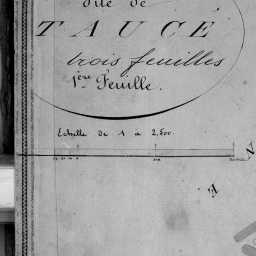 dite de
TAUCÉ
trois feuilles
1ère Feuille.
Echelle de 1 à 2,500
A